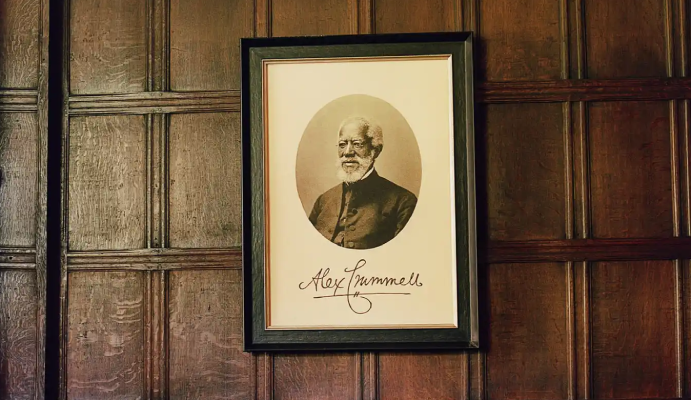 Alex Crummell